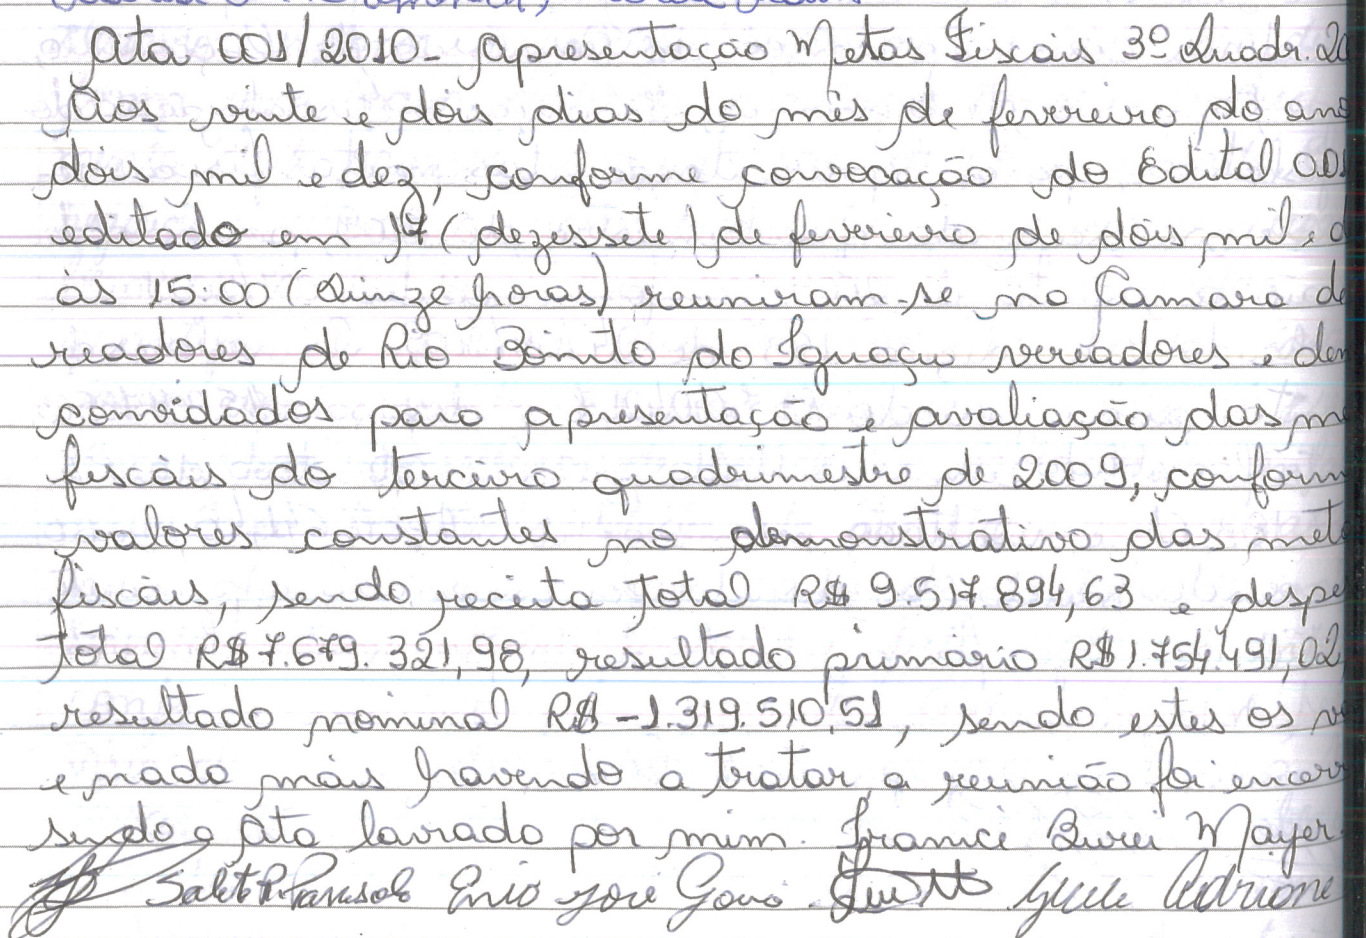 Ata 001/2010 - Apresentação Metas Fiscais 3º Quadr. 20
Aos vinte e dois dias do mês de fevereiro do ano
dois mil e dez, conforme convocação do Edital 001
editado em 17 (dezessete) de fevereiro de dois mil e
às 15:00 (Quinze horas) reuniram-se na Camara de
readores de Rio Bonito do Iguaçu vereadores e dem
convidados para apresentação e avaliação das m
fiscais do terceiro quadrimestre de 2009, conform
valores constantes no demonstrativo das meta
fiscais, sendo receita total R$ 9.517.894,63 e despe
total R$ 7.679.321,98, resultado primário R$ 1.754.491,02
resultado nominal R$ -1.319.510,51, sendo estes os v
e nada mais havendo a tratar, a reunião foi encerr
sendo a Ata lavrada por mim. Burei Mayer.
Enio José